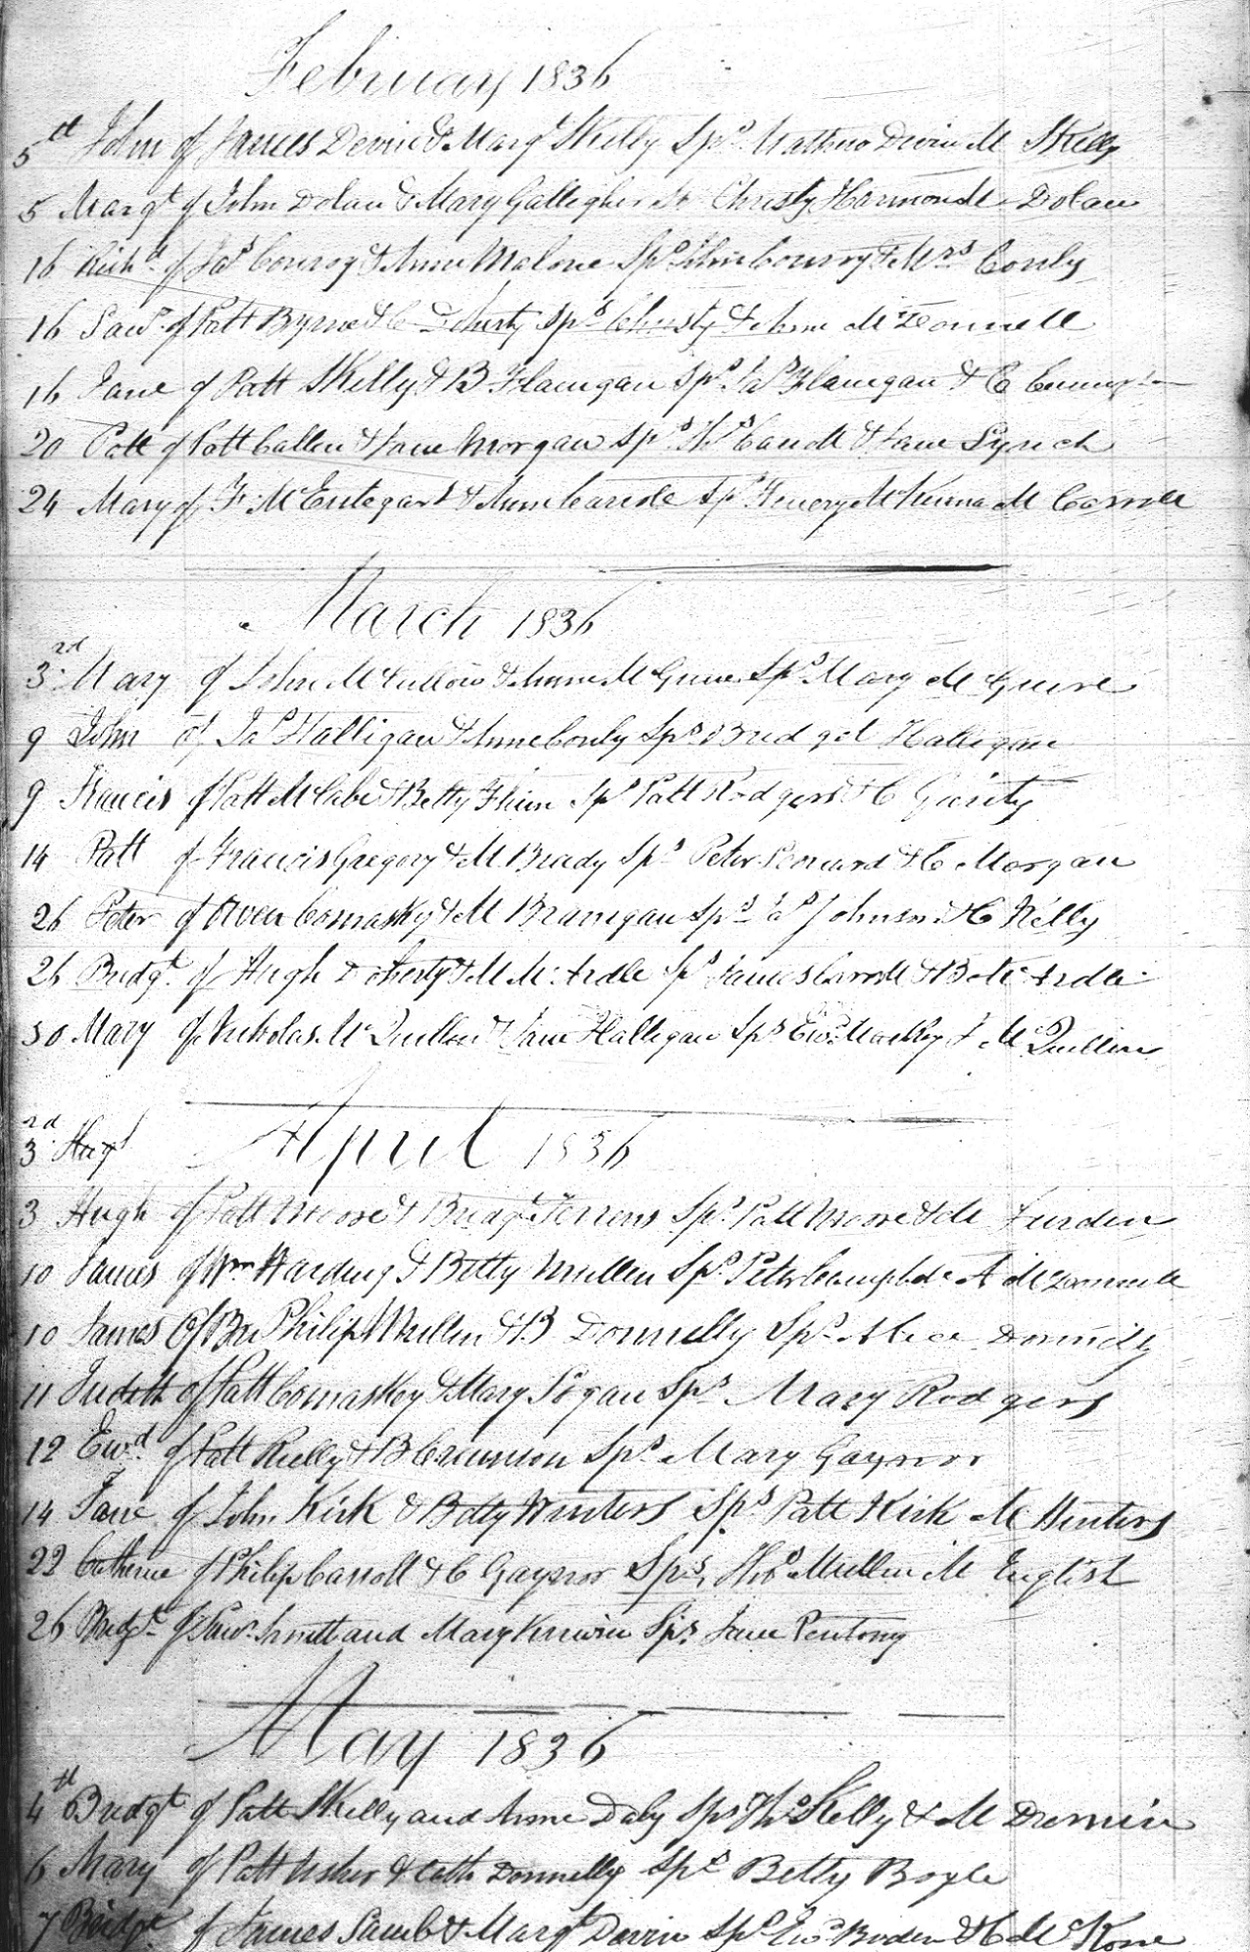 February 1836
5th John of James Devin & Margt Skelly Sps Mathew Devin M Skelly
5 Margt of John Dolan & Mary Gallegher Sp Christy Harmon M Dolan
16 Richd of Jas Conroy & Anne Malone Sps John Conroy & Mrs Conly
16 Lawe of Patt Byrne & C Doherty Sps Christy & Anne McDonnell
16 Jane of Patt Skelly & B Flanigan Sps Jas Flanigan & C
20 Patt of Patt Callen & Jane Morgan Sps Thos & Jane Lynch
24 Mary of F. McEntegart & Anne Sps Henery McKenna M Carroll
March 1836
3rd Mary of John McCullow & Anne McGuire Sps Mary McGuire
9 John of Jas Halligan & Anne Conly Sps Bridget Halligan
9 Francis of Patt McCabe & Betty Flinn Sps Patt Rodgers & C Garity
14 Patt of Francis Gregory & M Brady Sps Peter Leonard & C Morgan
26 Peter of Owen Comaskey & M Branigan Sps Jas Johnson & C Kelly
26 Bridgt of Hugh Doherty & M McArdle Sps James Carroll & B McArdle
30 Mary of Nicholas McQuillen & Jane Halligan Sps Ewd Mackey & McQuillen
April 1836
3rd Hugh
3 Hugh of Patt Moore & Bridgt Sps Patt Moore & M
10 James of Wm Harding & Betty Mullen Sps Peter Campbell A McDonnell
10 James Of Philip Mullen & B Donnelly Sps Alice Donnelly
11 Judith of Patt Comaskey & Mary Logan Sps Mary Rodgers
12 Ewd of Patt Reilly & B Sps Mary Gaynor
14 Jane of John Kirk & Betty Winters Sps Patt Kirk M Winters
22 Catherine of Philip Carroll & C Gaynor Sps Thos Mullen M English
26 Bridgt of Lawe Smitt and Mary Kirwin Sps Jane Pentony
May 1836
4th Bridgt of Patt Skelly and Anne Daly Sps Thos Skelly & M
6 Mary of Patt Usher & Cath Donnelly Sps Betty Boyle
7 Bridgt of James Lamb & Margt Devin Sps Ewd Boden & C McKone